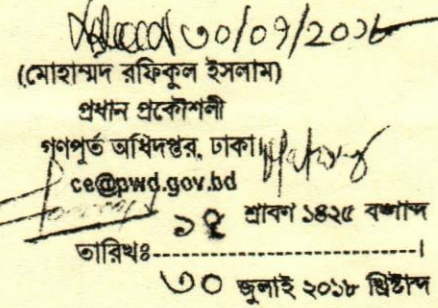 ৩০/০৭/২০১৮
(মোহাম্মদ রফিকুল ইসলাম)
প্রধান প্রকৌশলী
গণপূর্ত অধিদপ্তর, ঢাকা।
ce@pwd.gov.bd
১৫ শ্রাবণ ১৪২৫ বঙ্গাব্দ
তারিখঃ--------------------------।
৩০ জুলাই ২০১৮ খ্রিষ্টাব্দ